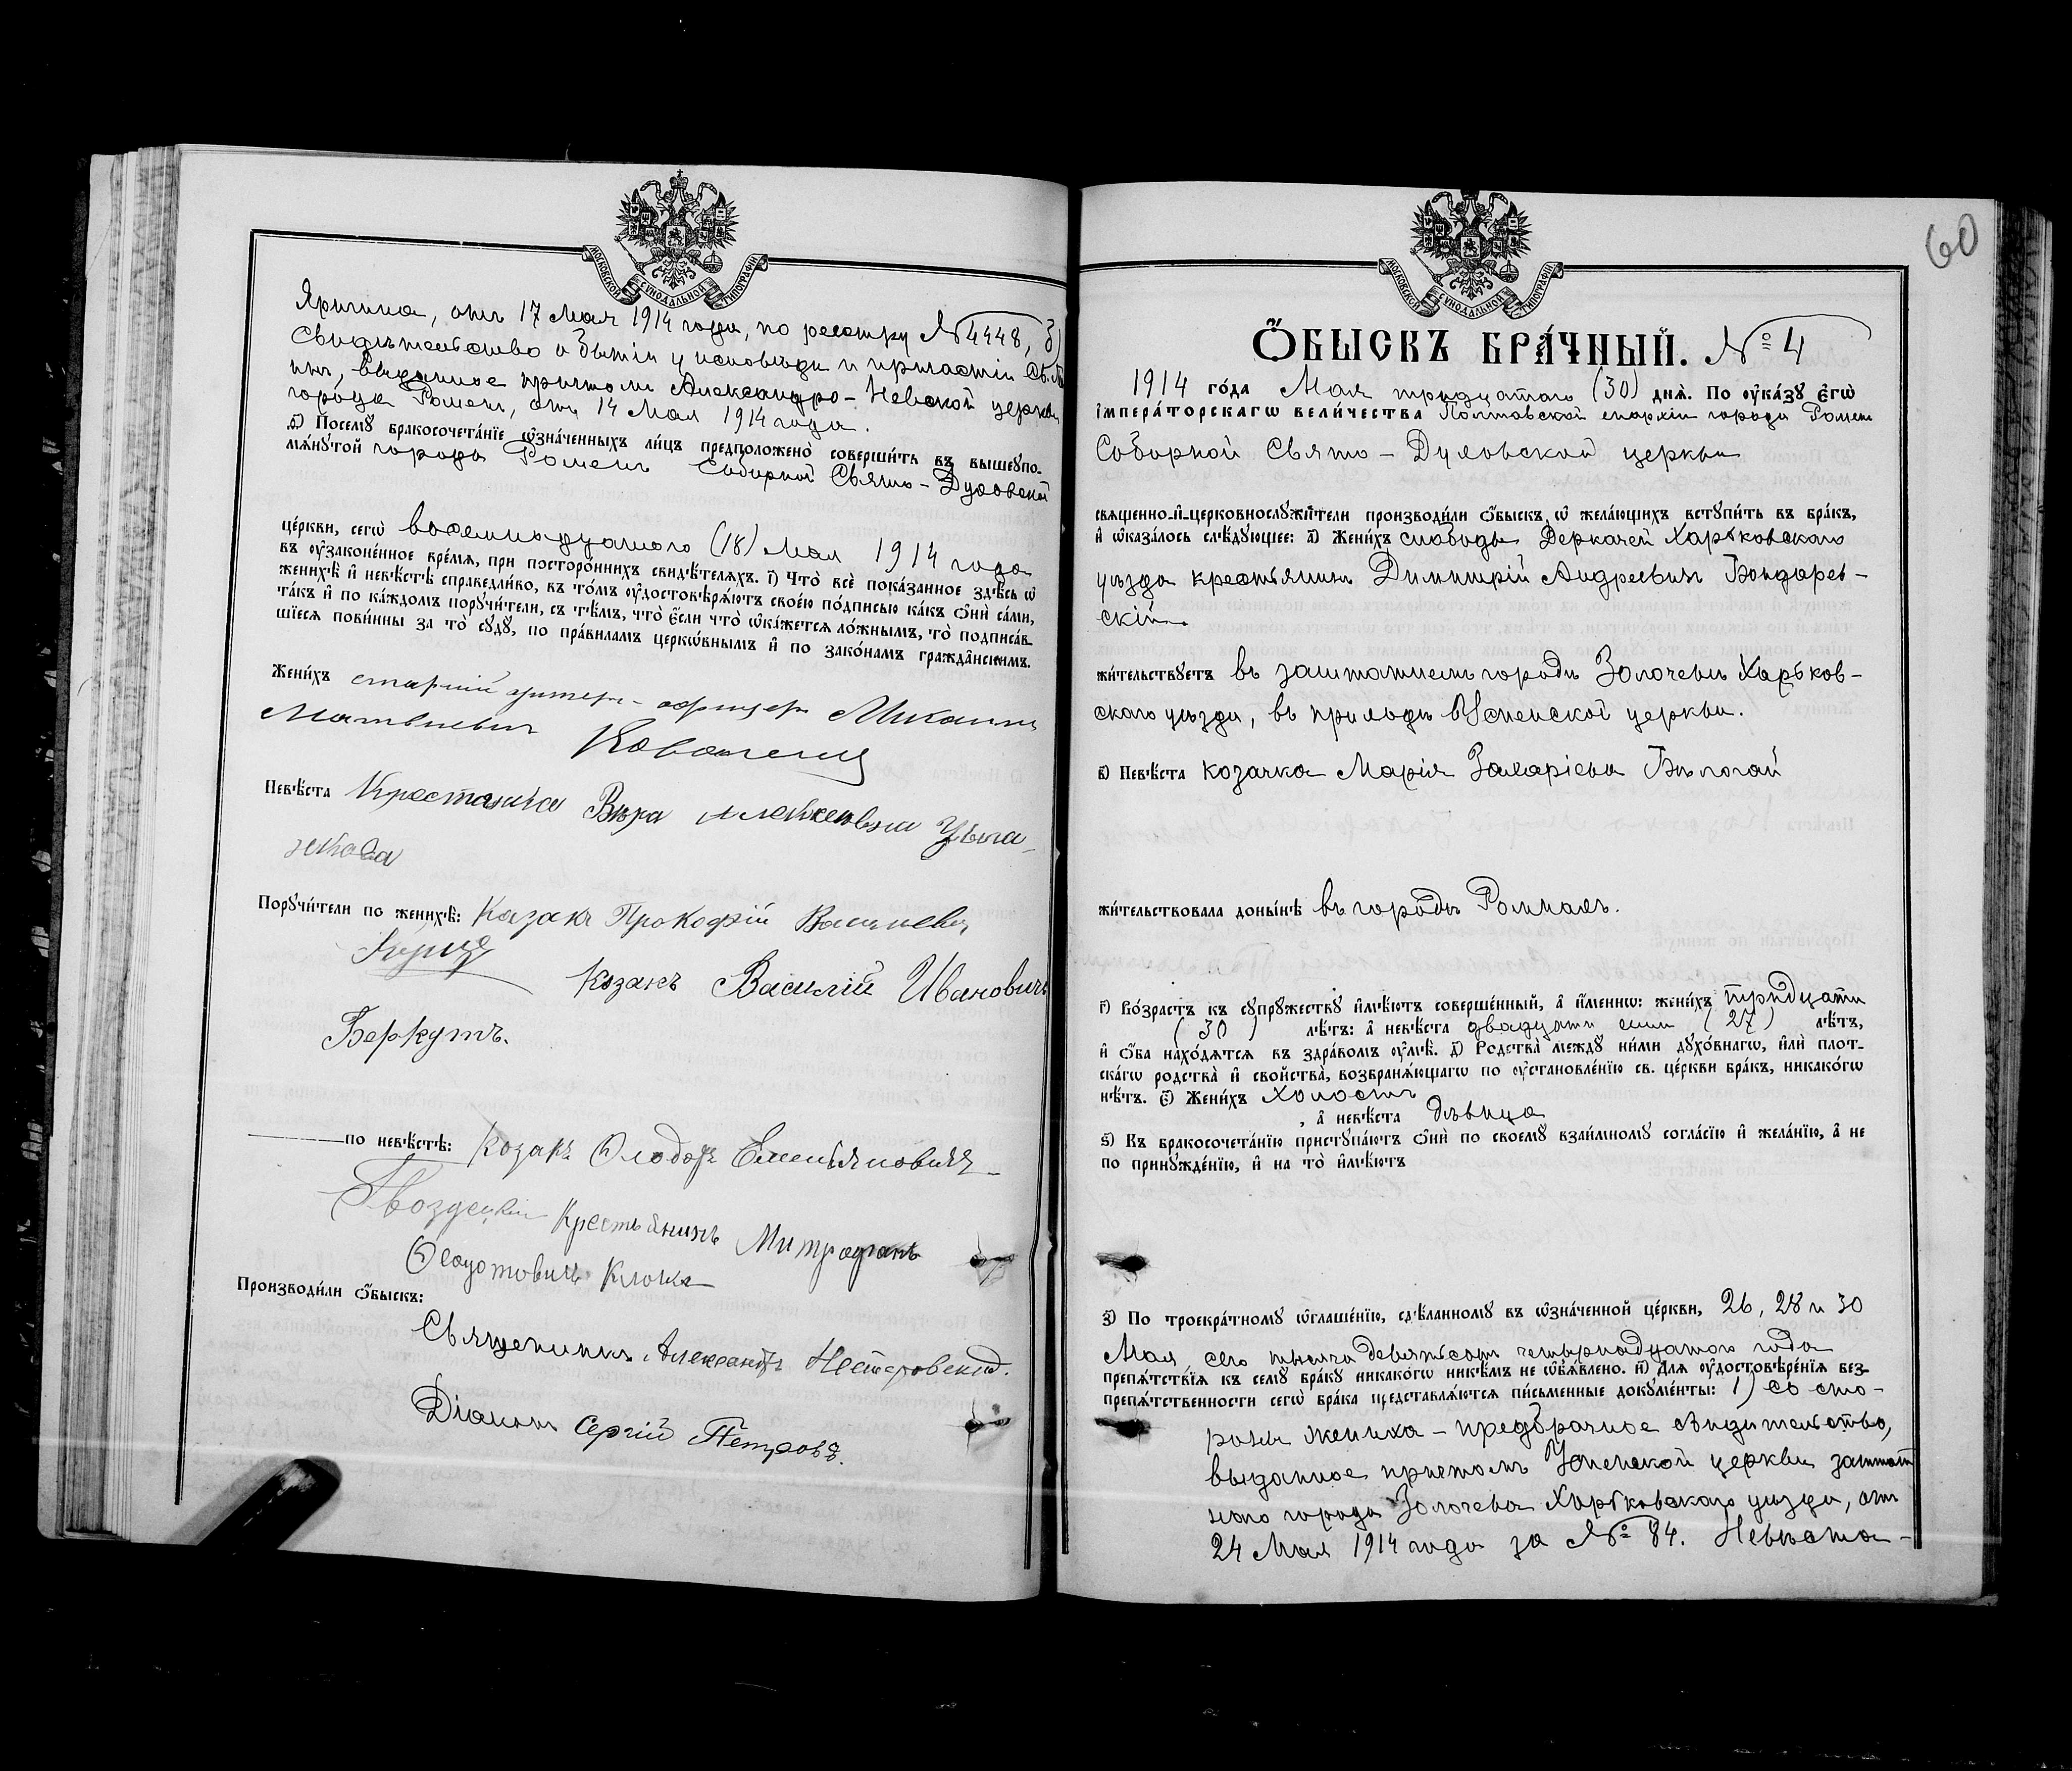 МОСКОВСКОЙ СѴНОДАЛЬНОЙ ТИПОГРАФІИ
от 17 Мая 1914 года, по реестру № 4448, 3)
Свидѣтельство о бытіи у исповѣди и причастіи Св.
выданное причтомъ Александро-Невской церкви
города Роменъ, отъ 14 Мая 1914 года.
Посемꙋ бракосочета́нїе ѡ҆зна́ченныхъ ли́цъ предположено̀ соверши́ть въ вышеꙋпо-
мѧ́нꙋтой города Роменъ Соборной Свято-Духовской
це́ркви, сегѡ̀ восемнадцатого (18) Мая 1914 года
въ ᲂу҆законе́нное вре́мѧ, при посторо́ннихъ свидѣ́телѧхъ. і҃) Что̀ всѐ пока́занное здѣ́сь ѡ҆
женихѣ̀ и҆ невѣ́стѣ справедли́во, въ то́мъ ᲂу҆достовѣрѧ́ютъ свое́ю по́дписью ка́къ ѻ҆нѝ са́ми,
та́къ и҆ по ка́ждомъ порꙋчи́тели, съ тѣ́мъ, что̀ є҆́сли что̀ ѡ҆ка́жетсѧ ло́жнымъ, то̀ подписа́в-
шїесѧ пови́нны за то̀ сꙋдꙋ̀, по пра́виламъ церкѡ́внымъ и҆ по зако́намъ гражда̑нскимъ.
Жени́хъ старшій унтеръ-офицеръ
Невѣ́ста Вѣра
Порꙋчи́тели по женихѣ̀: Казакъ Прокофій
Козакъ Василій Ивановичъ
Беркутъ.
по невѣ́стѣ: Козакъ Емельяновичъ
Гвоздецкій Крестьянинъ Митрофанъ
Клока
Производи́ли ѻ҆́быскъ:
Священникъ Александръ Нестеровскій.
Діаконъ Сергій Петровъ.
60
МОСКОВСКОЙ СѴНОДАЛЬНОЙ ТИПОГРАФІИ
Ѻ҆́БЫСКЪ БРА́ЧНЫЙ. № 4
1914 го́да Мая тридцатого (30) днѧ̀. По ᲂу҆ка́зꙋ є҆гѡ̀
і҆мпера́торскагѡ вели́чества Полтавской епархіи города Роменъ
Соборной Свято-Духовской церкви
свѧще́нно-и҆-церковнослꙋжи́тели производи́ли ѻ҆́быскъ ѡ҆ жела́ющихъ встꙋпи́ть въ бра́къ,
и҆ ѡ҆каза́лось слѣ́дꙋющее: а҃) Жени́хъ слободы Деркачей Харьковскаго
уѣзда крестьянинъ Димитрій Андреевичъ Бондарев-
скій
жи́тельствꙋетъ въ заштатномъ городѣ Золочевѣ Харьков-
скаго уѣзда, въ приходѣ Успенской церкви.
в҃) Невѣ́ста козачка Марія Захаріева
жи́тельствовала доны́нѣ въ городѣ Ромнахъ.
г҃) Во́зрастъ къ сꙋпрꙋ́жествꙋ и҆мѣ́ютъ соверше́нный, а҆ и҆́меннѡ: жени́хъ тридцати
(30) лѣ́тъ: а҆ невѣ́ста двадцати семи (27) лѣ́тъ,
и҆ ѻ҆́ба нахо́дѧтсѧ въ здра́вомъ ᲂу҆мѣ̀. д҃) Родства̀ междꙋ̀ ни́ми дꙋхо́внагѡ, и҆лѝ плот-
ска́гѡ родства̀ и҆ свойства̀, возбранѧ́ющагѡ по ᲂу҆становле́нїю св. це́ркви бра́къ, никако́гѡ
нѣ́тъ. є҃) Жени́хъ холостъ
, а҆ невѣ́ста дѣвица
ѕ҃) Къ бракосочета́нїю пристꙋпа́ютъ ѻ҆нѝ по своемꙋ̀ взаи́мномꙋ согла́сїю и҆ жела́нїю, а҆ не
по принꙋжде́нїю, и҆ на то̀ и҆мѣ́ютъ
з҃) По троекра́тномꙋ ѡ҆глаше́нїю, сдѣ́ланномꙋ въ ѡ҆зна́ченной це́ркви, 26, 28 и 30
Мая, сего тысяча девятьсотъ четырнадцатого года
препѧ́тствїѧ къ семꙋ̀ бра́кꙋ никако́гѡ никѣ́мъ не ѡ҆б̾ѧ́влено. и҃) Длѧ ᲂу҆достовѣре́нїѧ без-
препѧ́тственности сегѡ̀ бра́ка представлѧ́ютсѧ пи́сьменные докꙋме́нты: 1) Со сто-
роны жениха – предбрачное свидѣтельство,
выданное причтомъ Успенской церкви заштат
наго города Золочева Харьковскаго уѣзда, отъ
24 Мая 1914 года за № 84. Невѣста-